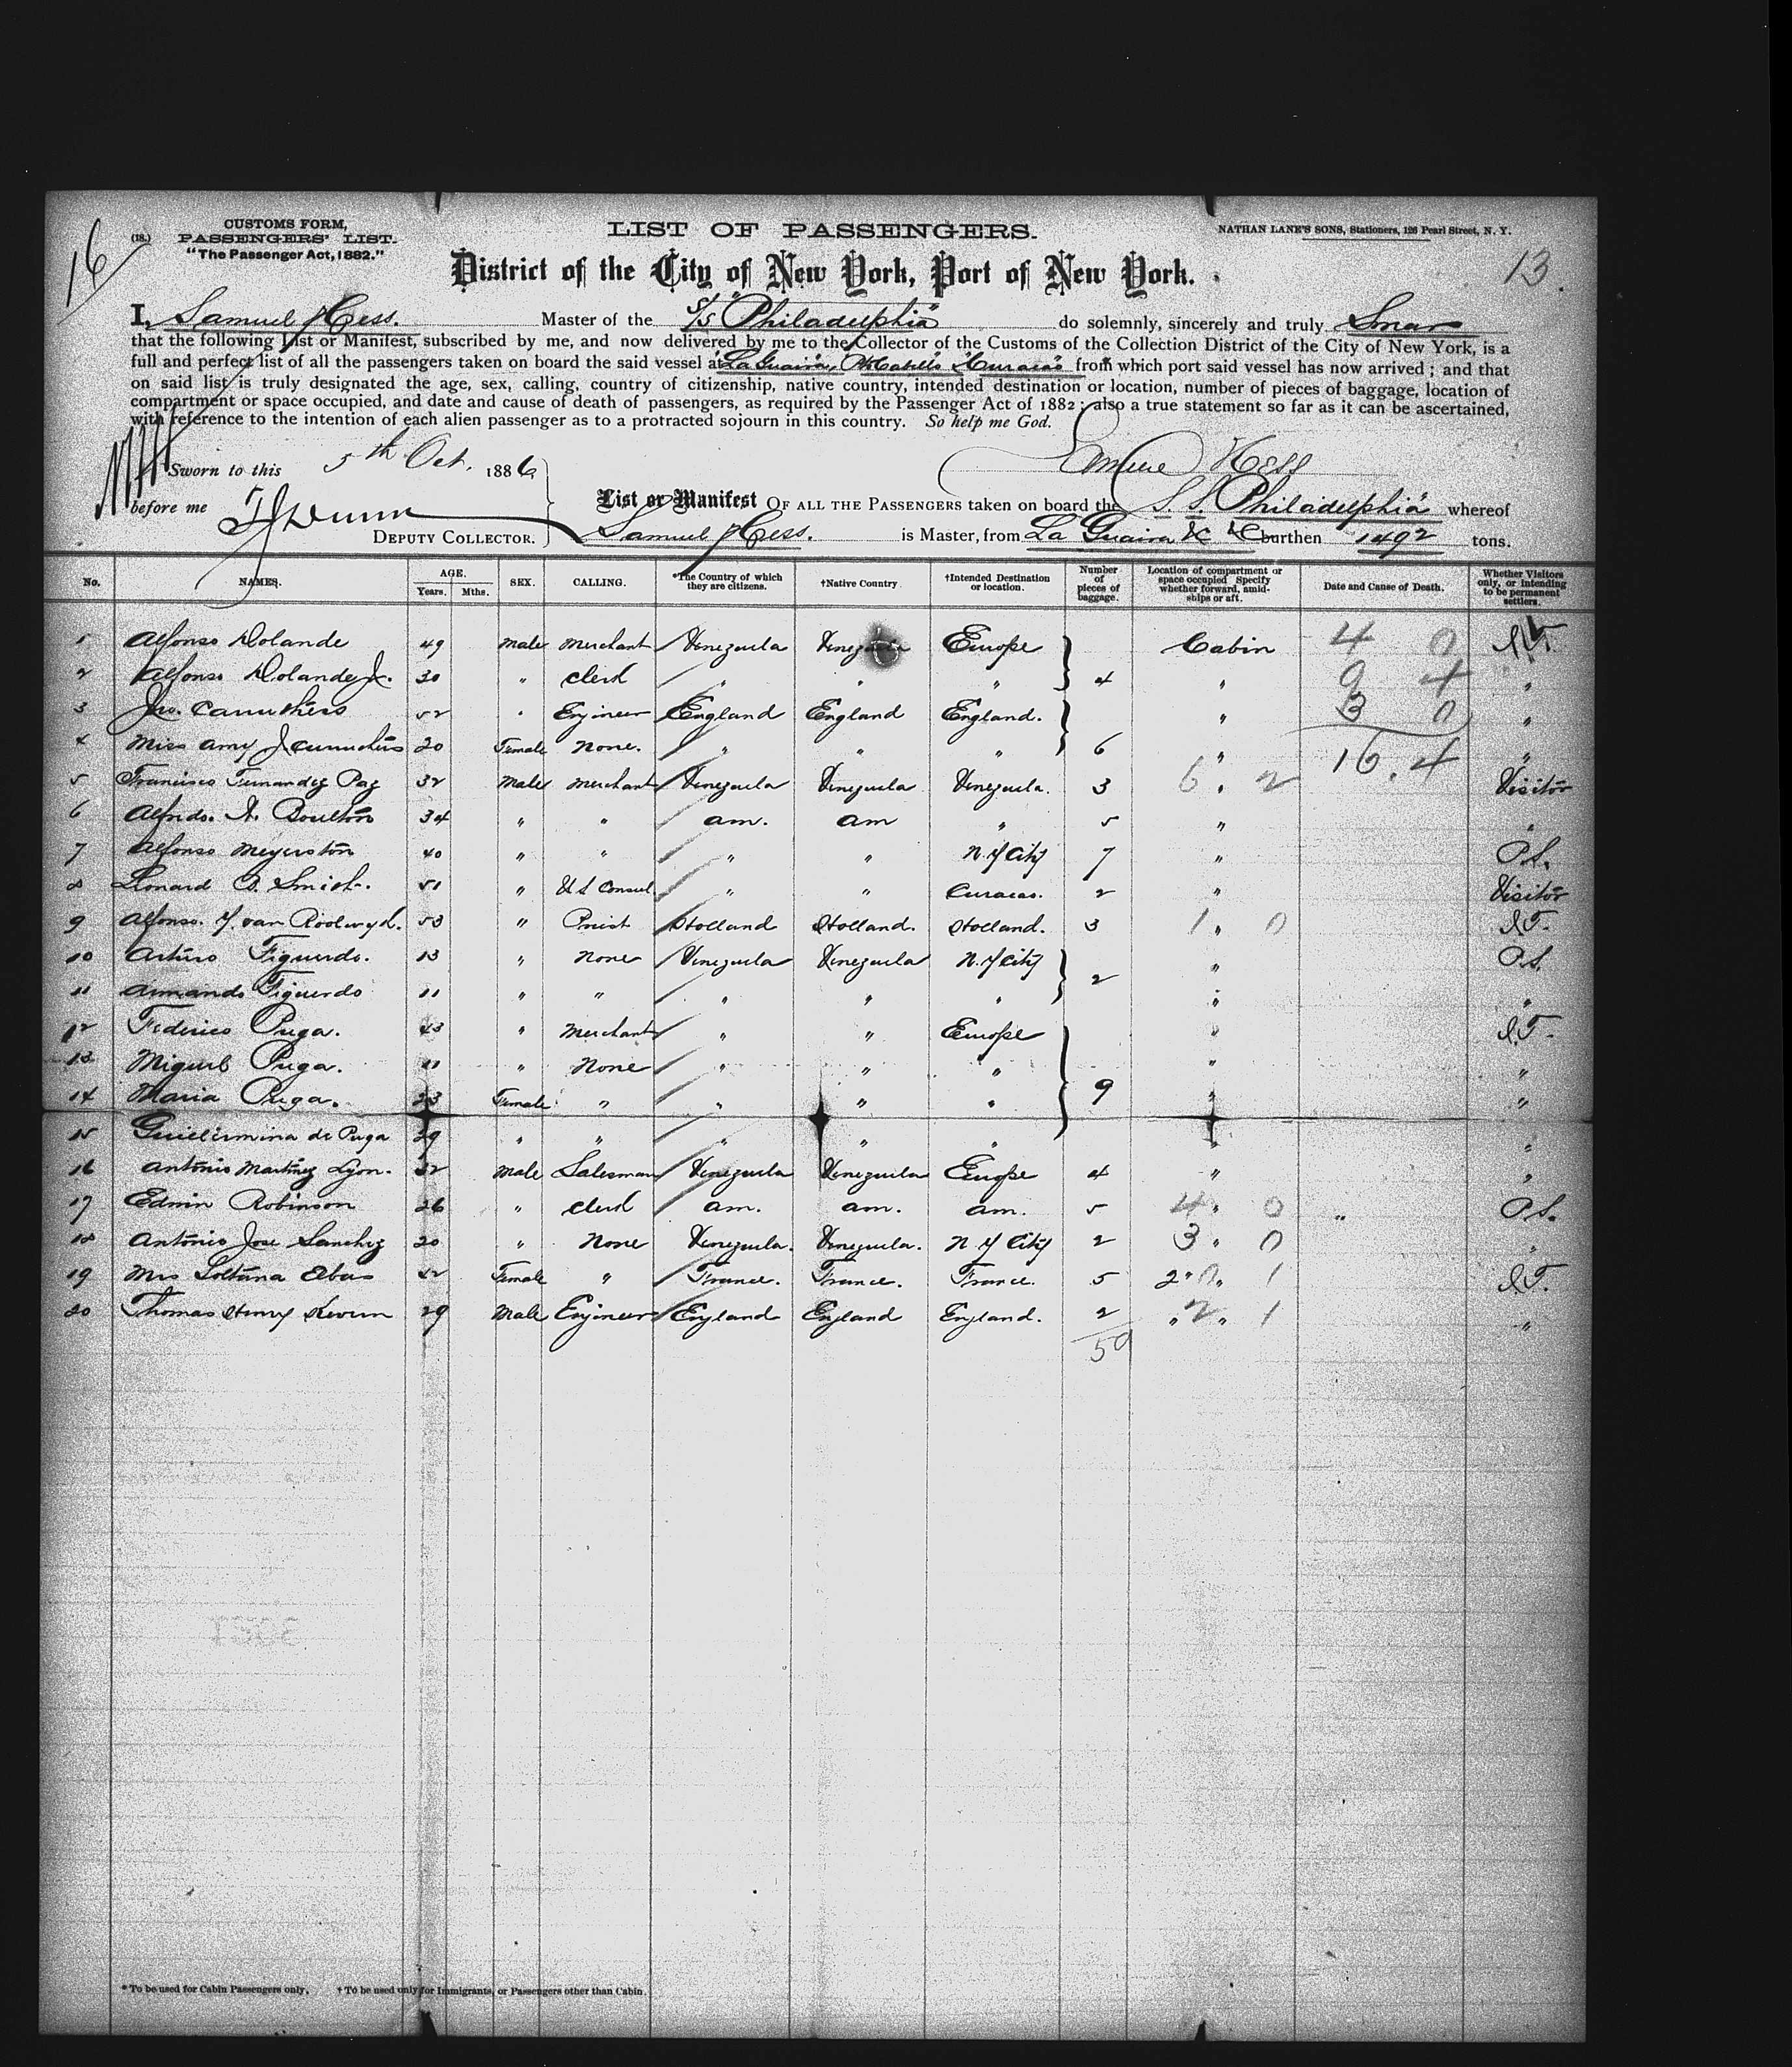 16
(18.)
CUSTOMS FORM,
PASSENGERS' LIST.
"The Passenger Act, 1882."
LIST OF PASSENGERS.
NATHAN LANE'S SONS, Stationers, 126 Pearl Street, N. Y.
District of the City of New York, Port of New York.
13.
I, Samuel Hess. Master of the S/S "Philadelphia" do solemnly, sincerely and truly Swear
that the following List or Manifest, subscribed by me, and now delivered by me to the Collector of the Customs of the Collection District of the City of New York, is a
full and perfect list of all the passengers taken on board the said vessel at La Guaira, Curacao from which port said vessel has now arrived; and that
on said list is truly designated the age, sex, calling, country of citizenship, native country, intended destination or location, number of pieces of baggage, location of
compartment or space occupied, and date and cause of death of passengers, as required by the Passenger Act of 1882; also a true statement so far as it can be ascertained,
with reference to the intention of each alien passenger as to a protracted sojourn in this country. So help me God.
Sworn to this 5th Oct. 1886
Hess
before me
DEPUTY COLLECTOR.
List or Manifest OF ALL THE PASSENGERS taken on board the S. S. "Philadelphia" whereof
Samuel Hess. is Master, from La Guaira &c &c burthen 1492 tons.
No. NAMES. AGE. Years. Mths. SEX. CALLING. *The Country of which they are citizens. †Native Country †Intended Destination or location. Number of pieces of baggage. Location of compartment or space occupied Specify whether forward, amidships or aft. Date and Cause of Death. Whether Visitors only, or intending to be permanent settlers.
1 Alfonso Dolande 49 Male Merchant Venezuela Venezuela Europe Cabin 4 0 I.T.
2 Alfonso Dolande Jr. 30 " Clerk " " " 4 " 9 4 "
3 Jno. Carruthers 52 " Engineer England England England. " 3 0 "
4 Miss Amy J Carruthers 20 Female None. " " " 6 " 16.4 "
5 Francisco Fernandez Paz 32 Male Merchant Venezuela Venezuela Venezuela. 3 6 " 2 Visitor
6 Alfredo. N. Boulton 34 " " am. am " 5 " "
7 Alfonso Meyerston 40 " " " " N. Y City 7 " P.S.
8 Leonard B. Smith. 51 " U S Consul " " Curacao. 2 " Visitor
9 Alfonso. J. van 53 " Priest Holland Holland. Holland. 3 1 " 0 I.T.
10 Arturo Figueredo. 13 " None Venezuela Venezuela N. Y City " P.S.
11 Armando Figueredo 11 " " " " " 2 " "
12 Federico Puga. 43 " Merchant " " Europe " I.T.
13 Miguel Puga. 11 " None " " " " "
14 Maria Puga. 23 Female " " " " 9 " "
15 Guillermina de Puga 29 " " " " " " "
16 Antonio Martinez Lyon. 32 Male Salesman Venezuela Venezuela Europe 4 " "
17 Edwin Robinson 26 " Clerk am. am. am. 5 4 " 0 " P.S.
18 Antonio Jose Sanchez 20 " None Venezuela. Venezuela. N. Y City 2 3 " 0 "
19 Mrs Soltana 42 Female " France. France. France. 5 2 " 0 " 1 I.T.
20 Thomas Henry 29 Male Engineer England England England. 2 " 2 " 1 "
59
* To be used for Cabin Passengers only. † To be used only for Immigrants, or Passengers other than Cabin.